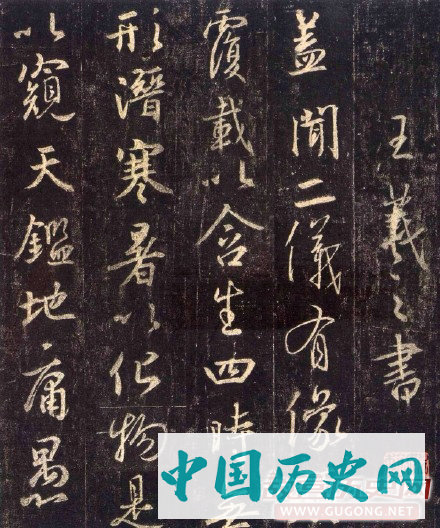 王羲之書
盖聞二儀有像
覆載以含生四時
形潛寒暑以化物是
以窺天鑑地庸愚
中国历史网
WWW.GUGONG.NET